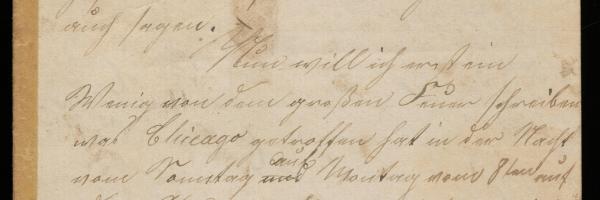 auch sagen.
Nun will ich erst ein
Wenig von dem großen Feuer schreiben
was Chicago getroffen hat in der Nacht
vom Sonntag auf Montag vom 8ten auf